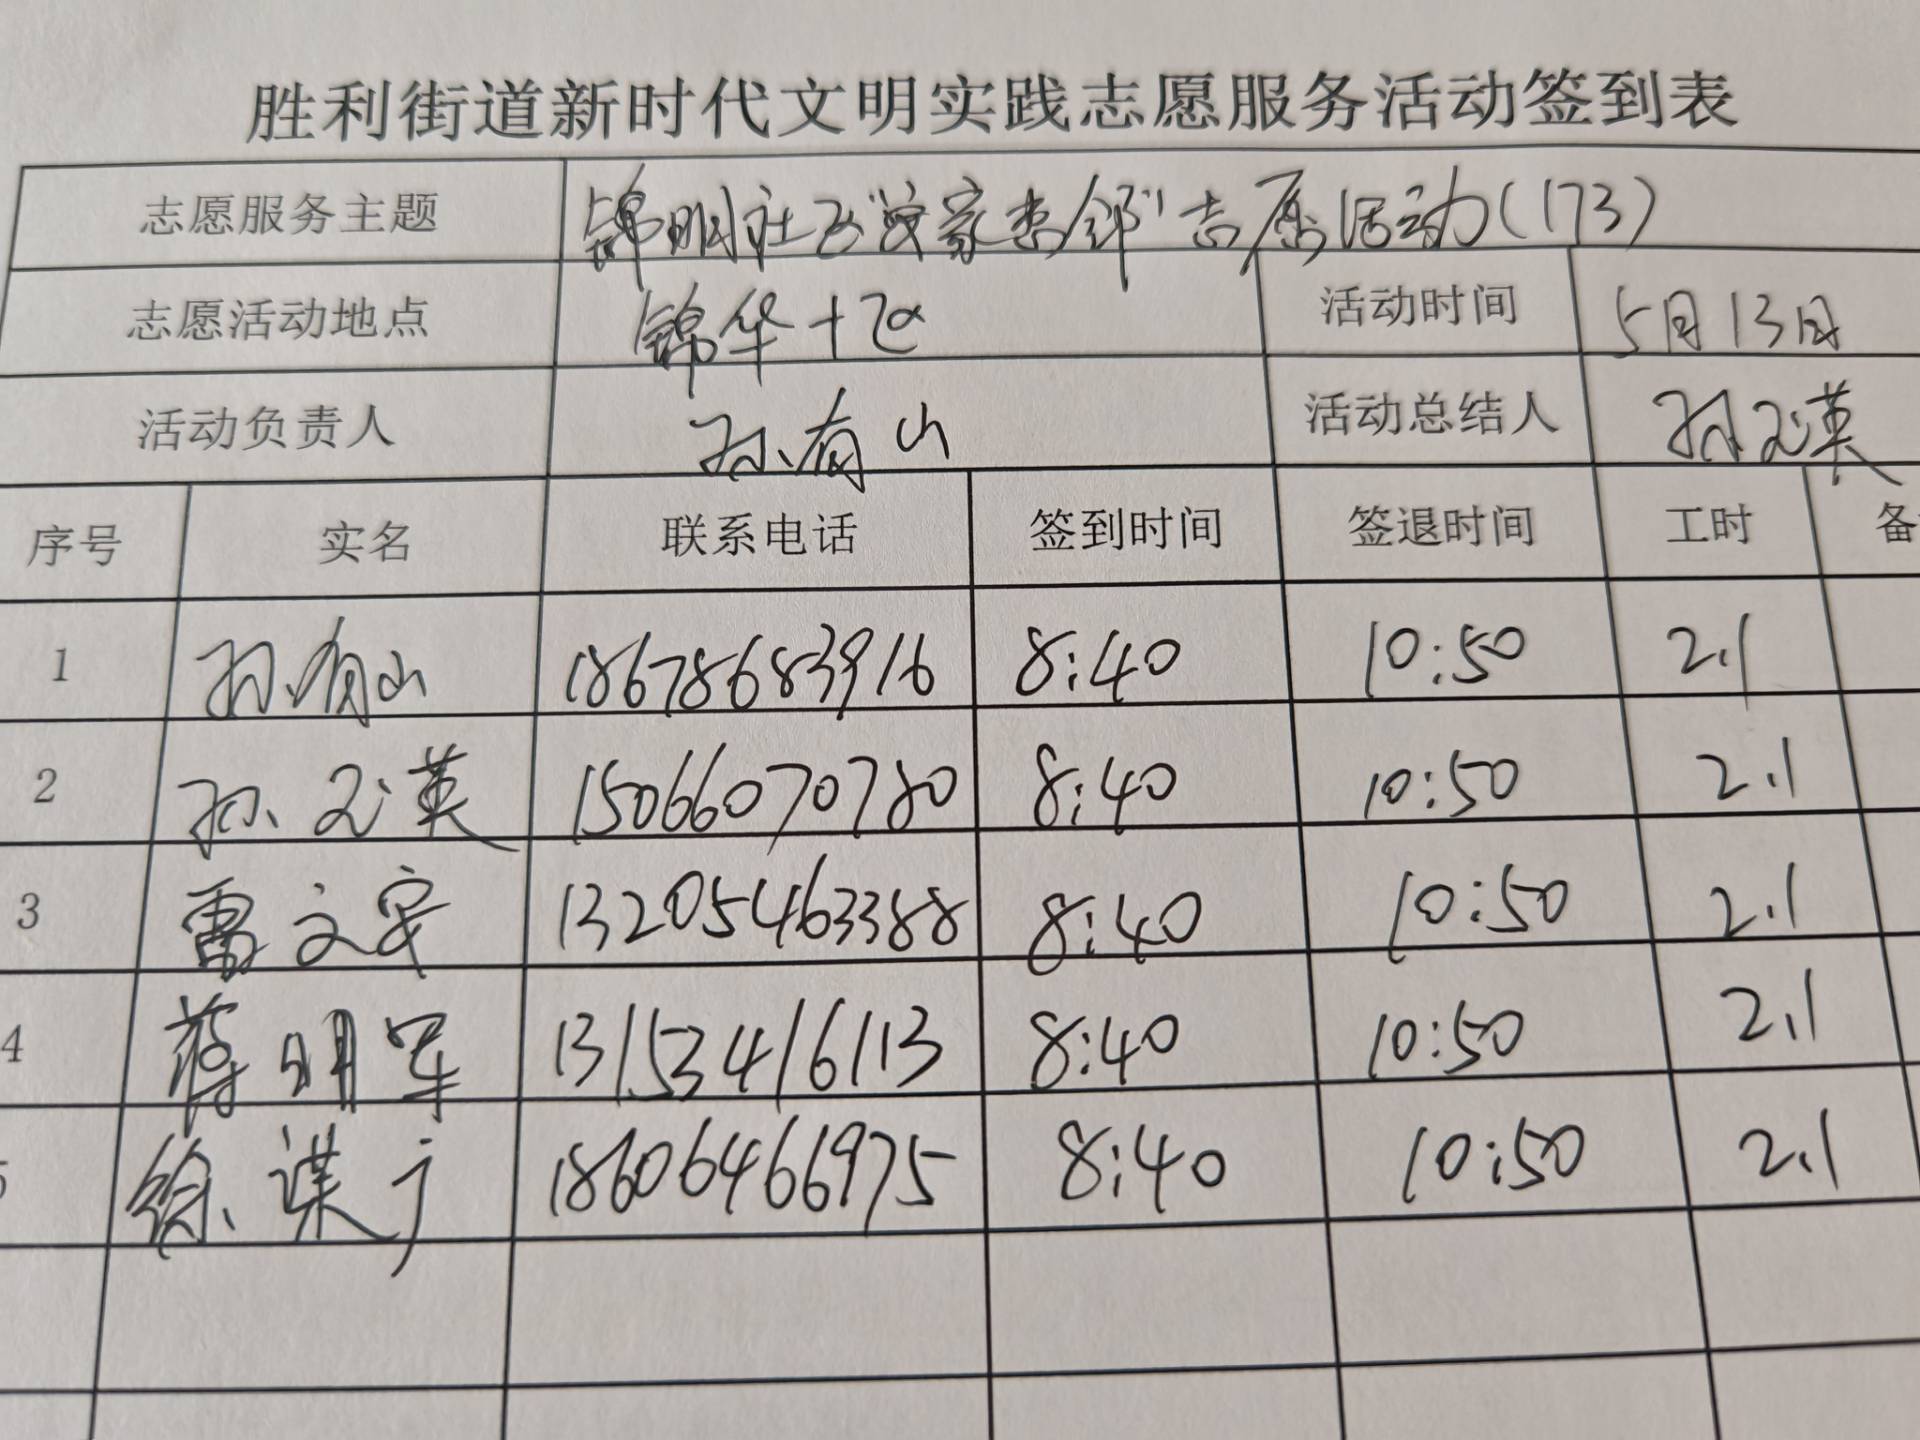 胜利街道新时代文明实践志愿服务活动签到表
志愿服务主题 锦明社区"爱家惠邻"志愿活动(173)
志愿活动地点 锦华十区 活动时间 5月13日
活动负责人 孙有山 活动总结人 孙文英
序号 实名 联系电话 签到时间 签退时间 工时 备
1 孙有山 18678683916 8:40 10:50 2.1
2 孙文英 15066070780 8:40 10:50 2.1
3 雷文安 13205463388 8:40 10:50 2.1
4 蒋明军 13153416113 8:40 10:50 2.1
5 徐谋广 18606466975 8:40 10:50 2.1